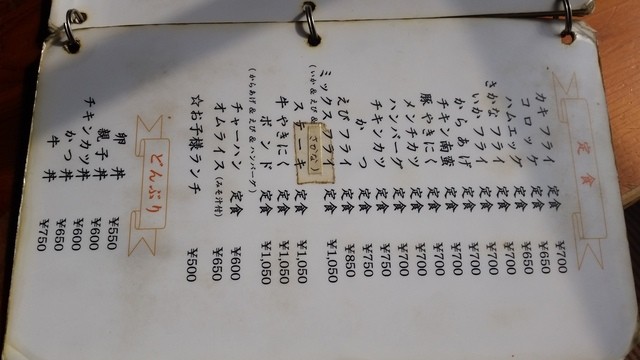 定食
カキフライ 定食 ¥700
コロッケ 定食 ¥650
ハムエッグ 定食 ¥650
さかなフライ 定食 ¥700
いかフライ 定食 ¥700
からあげ 定食 ¥700
チキン南蛮 定食 ¥700
豚やきにく 定食 ¥700
メンチカツ 定食 ¥700
ハンバーグ 定食 ¥700
チキンカツ 定食 ¥750
かつ 定食 ¥750
えびフライ 定食 ¥850
ミックスフライ 定食 ¥1,050
(いか&えび&さかな)
ステーキ 定食 ¥1,050
牛やきにく 定食 ¥1,050
ボンド 定食 ¥1,050
(からあげ&えび&ハンバーグ)
チャーハン 定食 ¥600
オムライス(みそ汁付) ¥650
☆お子様ランチ ¥500
どんぶり
卵丼 ¥550
親子丼 ¥600
チキンカツ丼 ¥600
かつ丼 ¥650
牛丼 ¥750